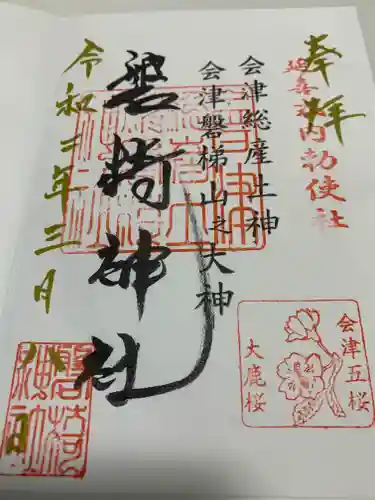 奉拝
延喜式内勅使社
会津総産土神
会津磐梯山之大神
磐椅神社
令和三年三月
日
会津五桜
大鹿桜